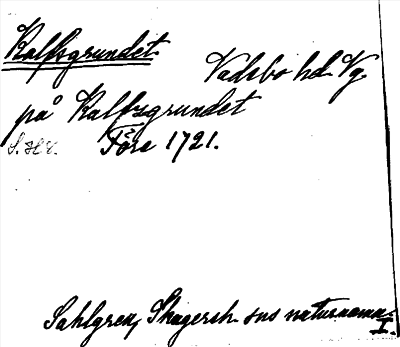 Kalfsgrundet
Vadsbo hd Vg.
på Kalfsgrundet
Före 1721.
Sahlgren, Skagersh. sns naturnamn.
I.